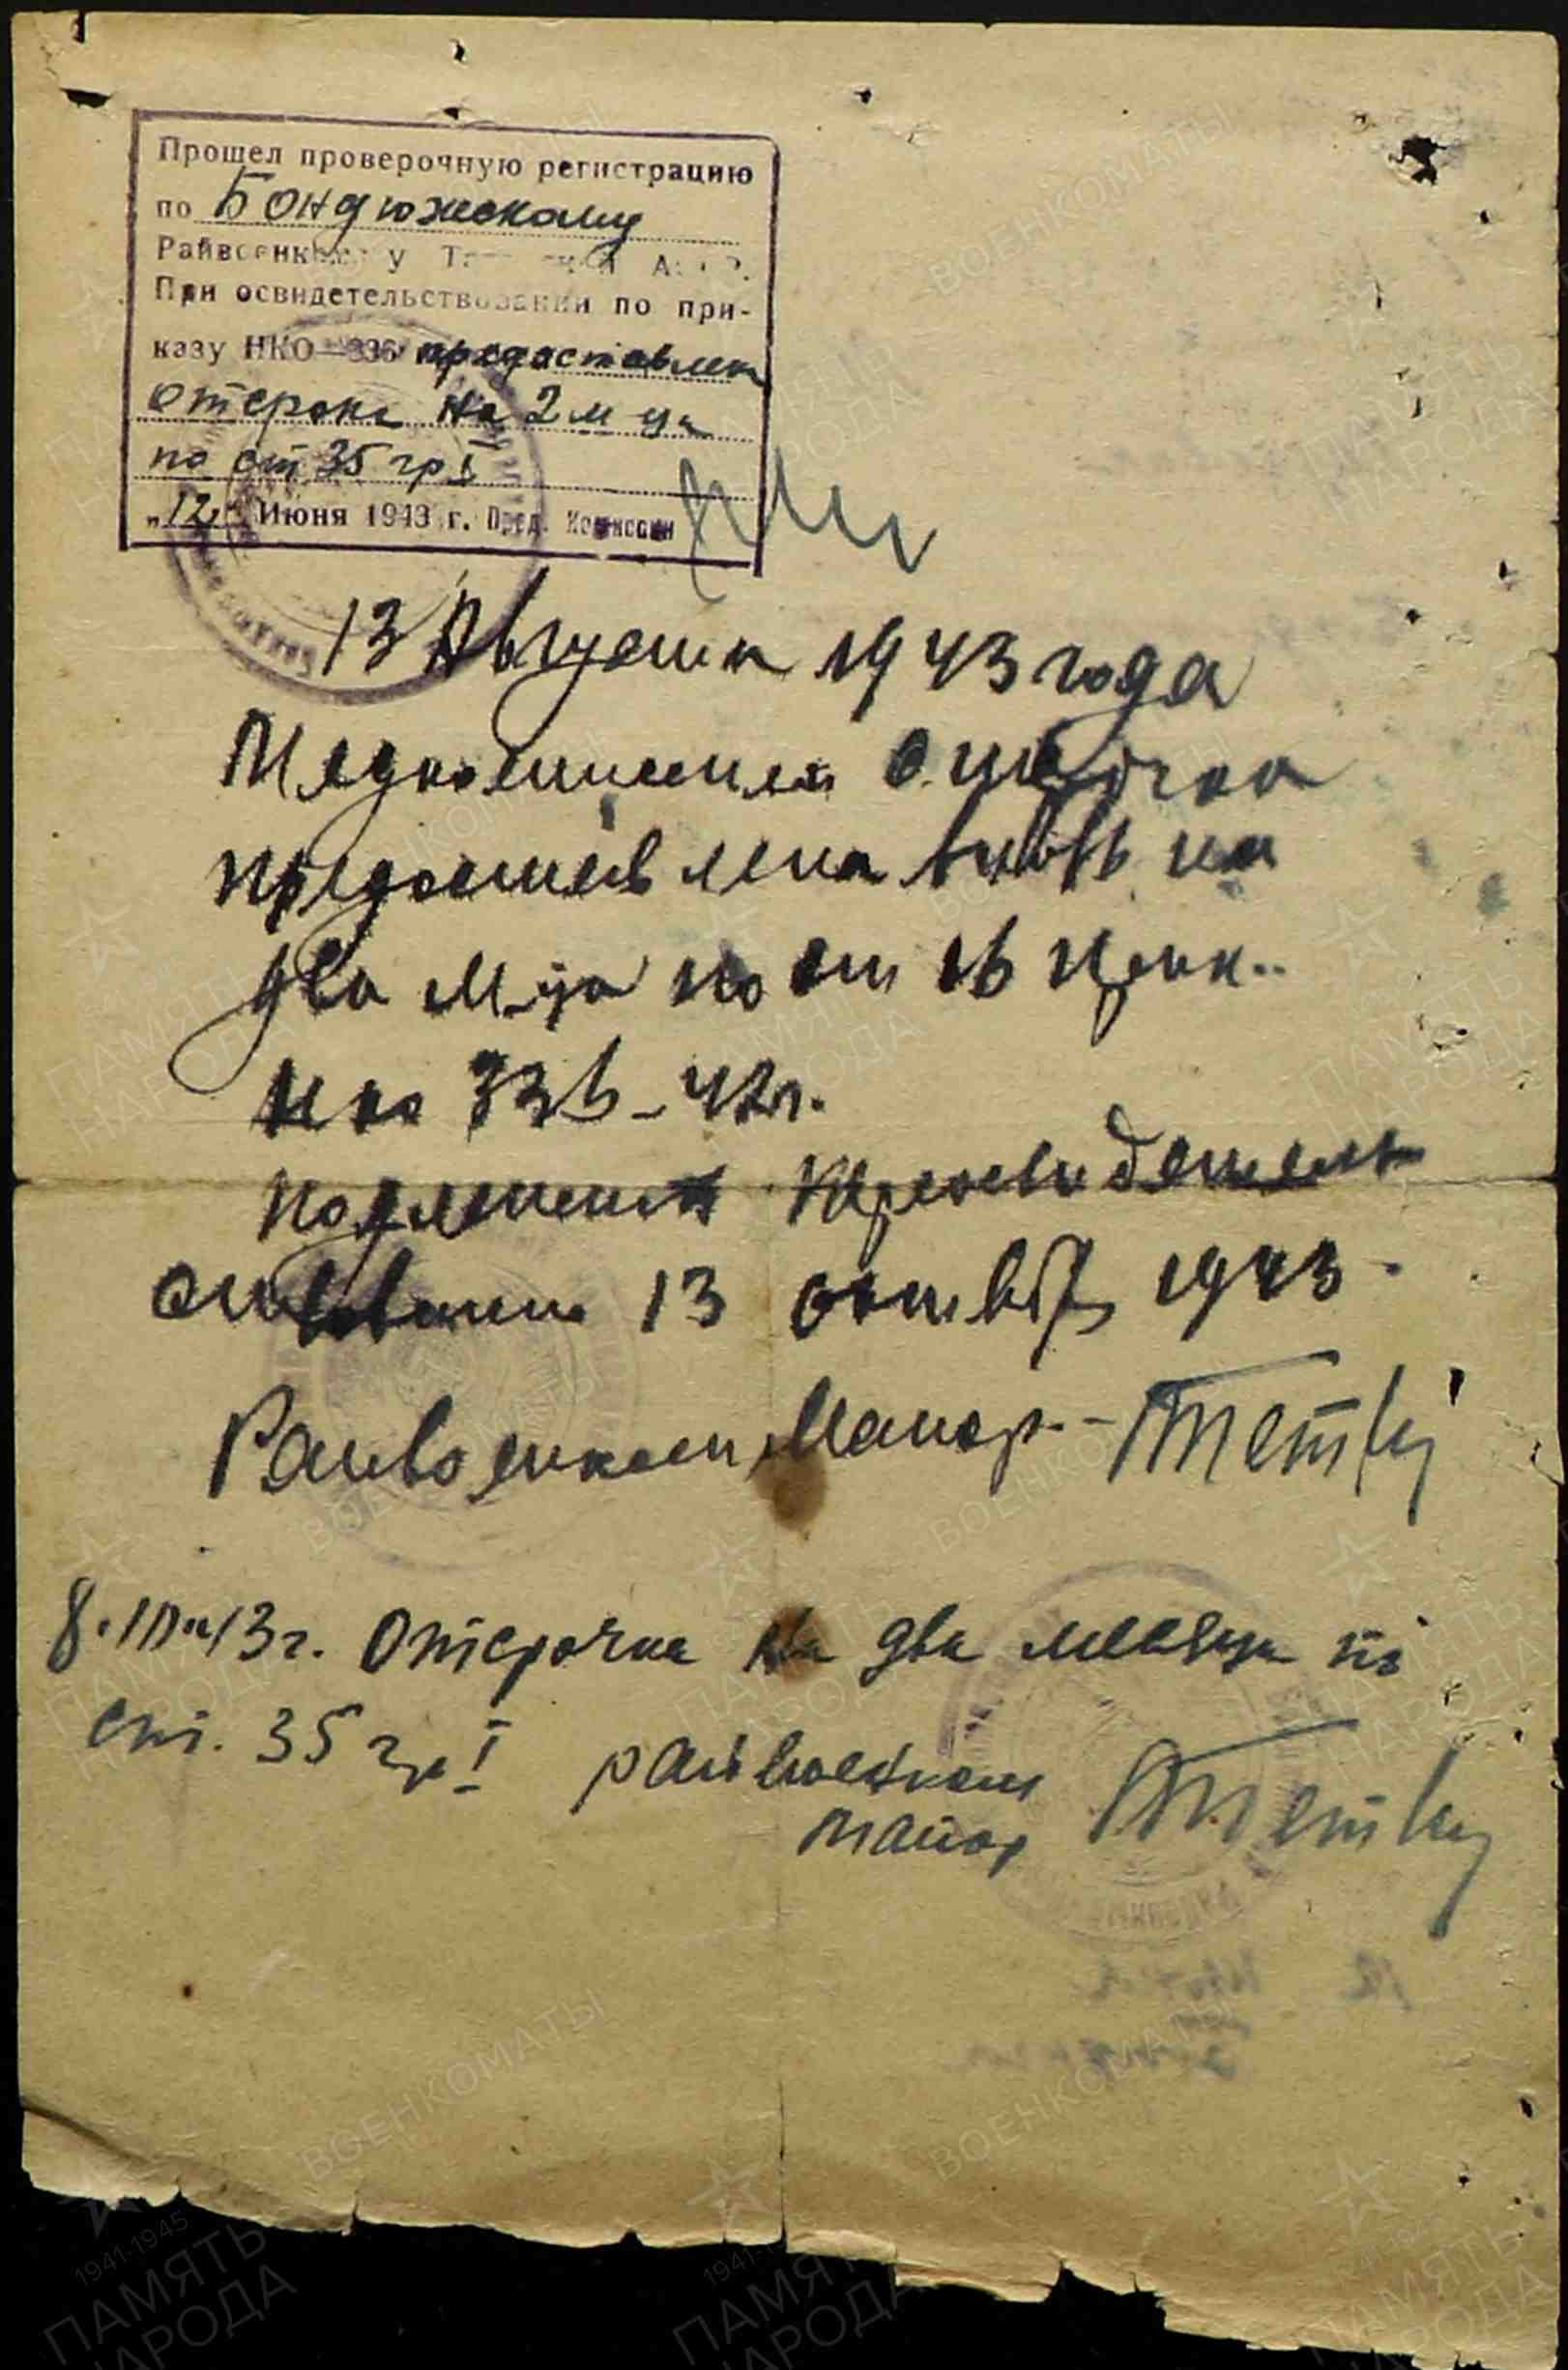 Прошел проверочную регистрацию
по Бондюжскому
Райвоенкомату АССР.
При освидетельствовании по при-
казу НКО—336 предоставлена
отсрока на 2 м-ца
по ст 35 гр I
"12" Июня 1943 г. Пред. Комиссии
13 Августа 1943 года
Медкомиссией отсрочка
предоставлена вновь на
два м-ца по ст
НКО 336-42г.
подлежит переосвидетель
ствованию 13 октября 1943
Райвоенком Майор
43г. Отсрочка на два месяца по
ст. 35 гр I райвоенком
майор
ПАМЯТЬ
НАРОДА
ВОЕНКОМАТЫ
1941-1945